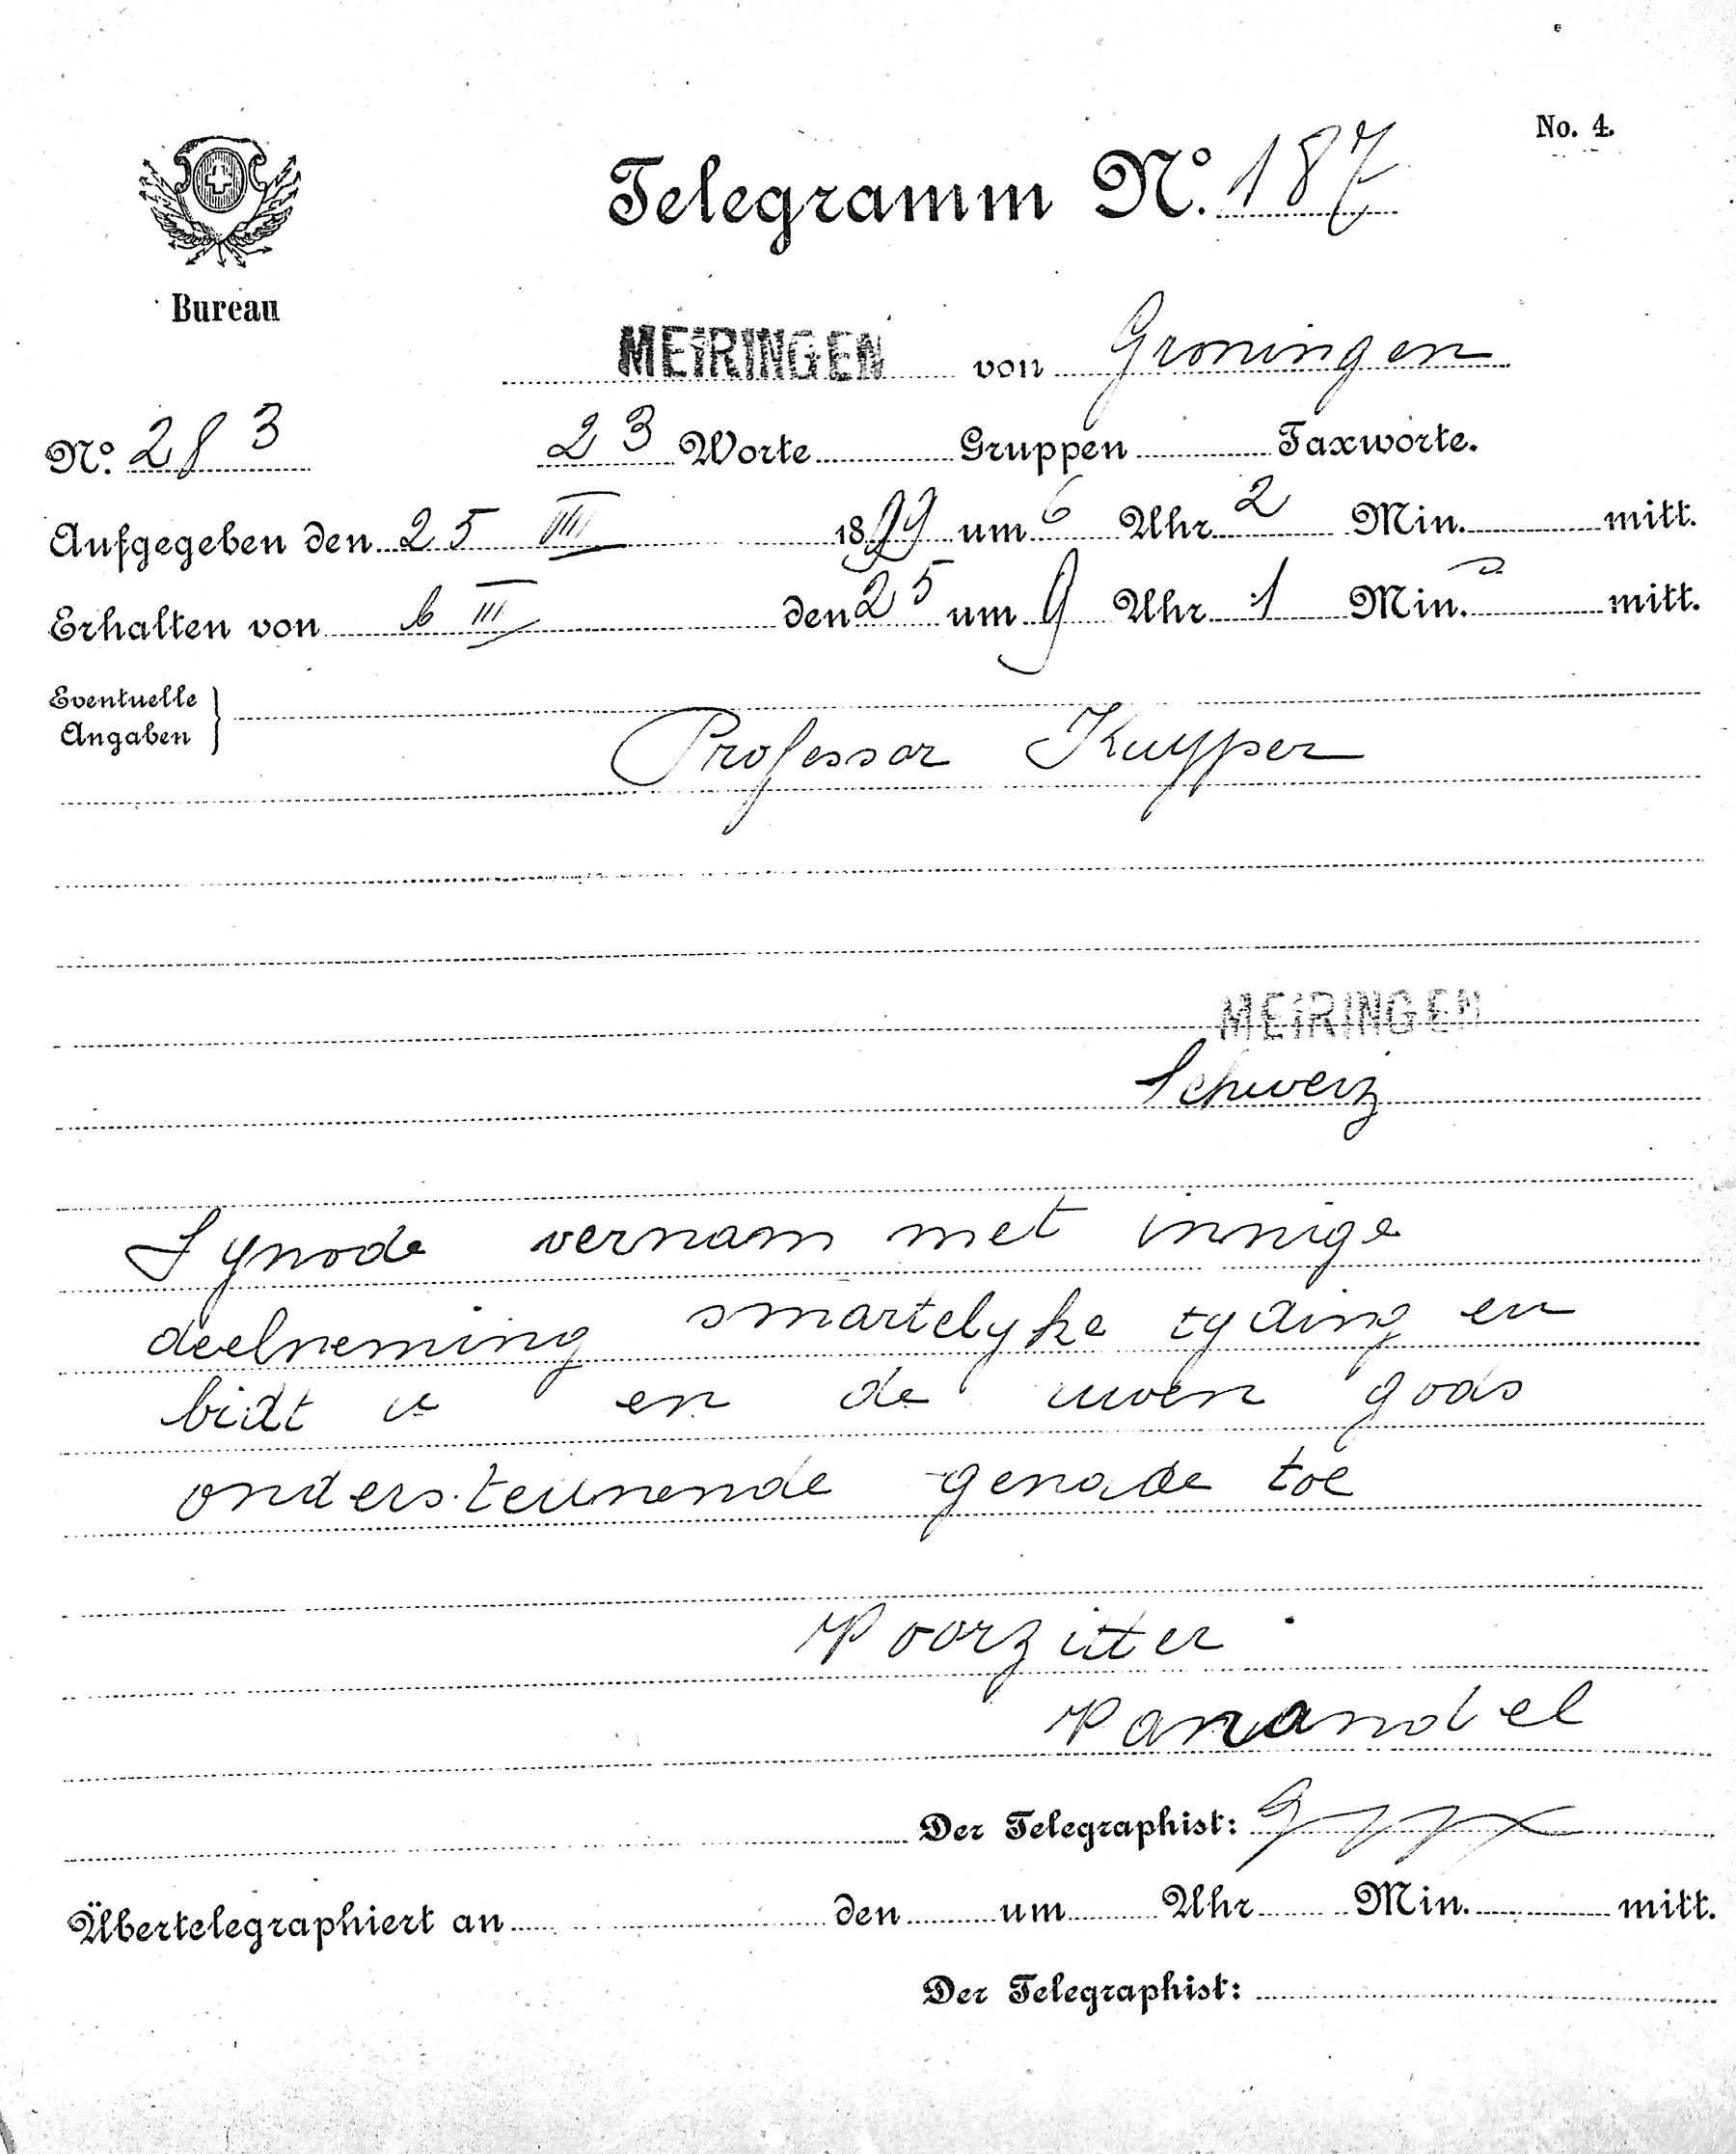 No. 4.
Telegramm No. 187
Bureau
MEIRINGEN von Groningen
No. 283 23 Worte Gruppen Taxworte.
Aufgegeben den 25 VIII 1899 um 6 Uhr 2 Min. mitt.
Erhalten von b III den 25 um 9 Uhr 1 Min. mitt.
Eventuelle
Angaben
Professor Kuyper
MEIRINGEN
Schweiz
Synode vernam met innige
deelneming smartelyke tyding en
bidt u en de uwen gods
ondersteunende genade toe
Voorzitter
Vanandel
Der Telegraphist:
Übertelegraphiert an den um Uhr Min. mitt.
Der Telegraphist: